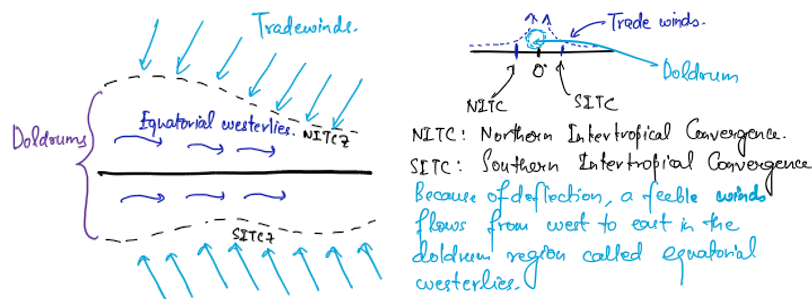 Tradewinds.
Doldrums
Equatorial westerlies.
NITCZ
SITCZ
Trade winds.
Doldrum
0°
NITC
SITC
NITC: Northern Intertropical Convergence.
SITC: Southern Intertropical Convergence
Because of deflection, a feeble winds
flows from west to east in the
doldrum region called equatorial
westerlies.